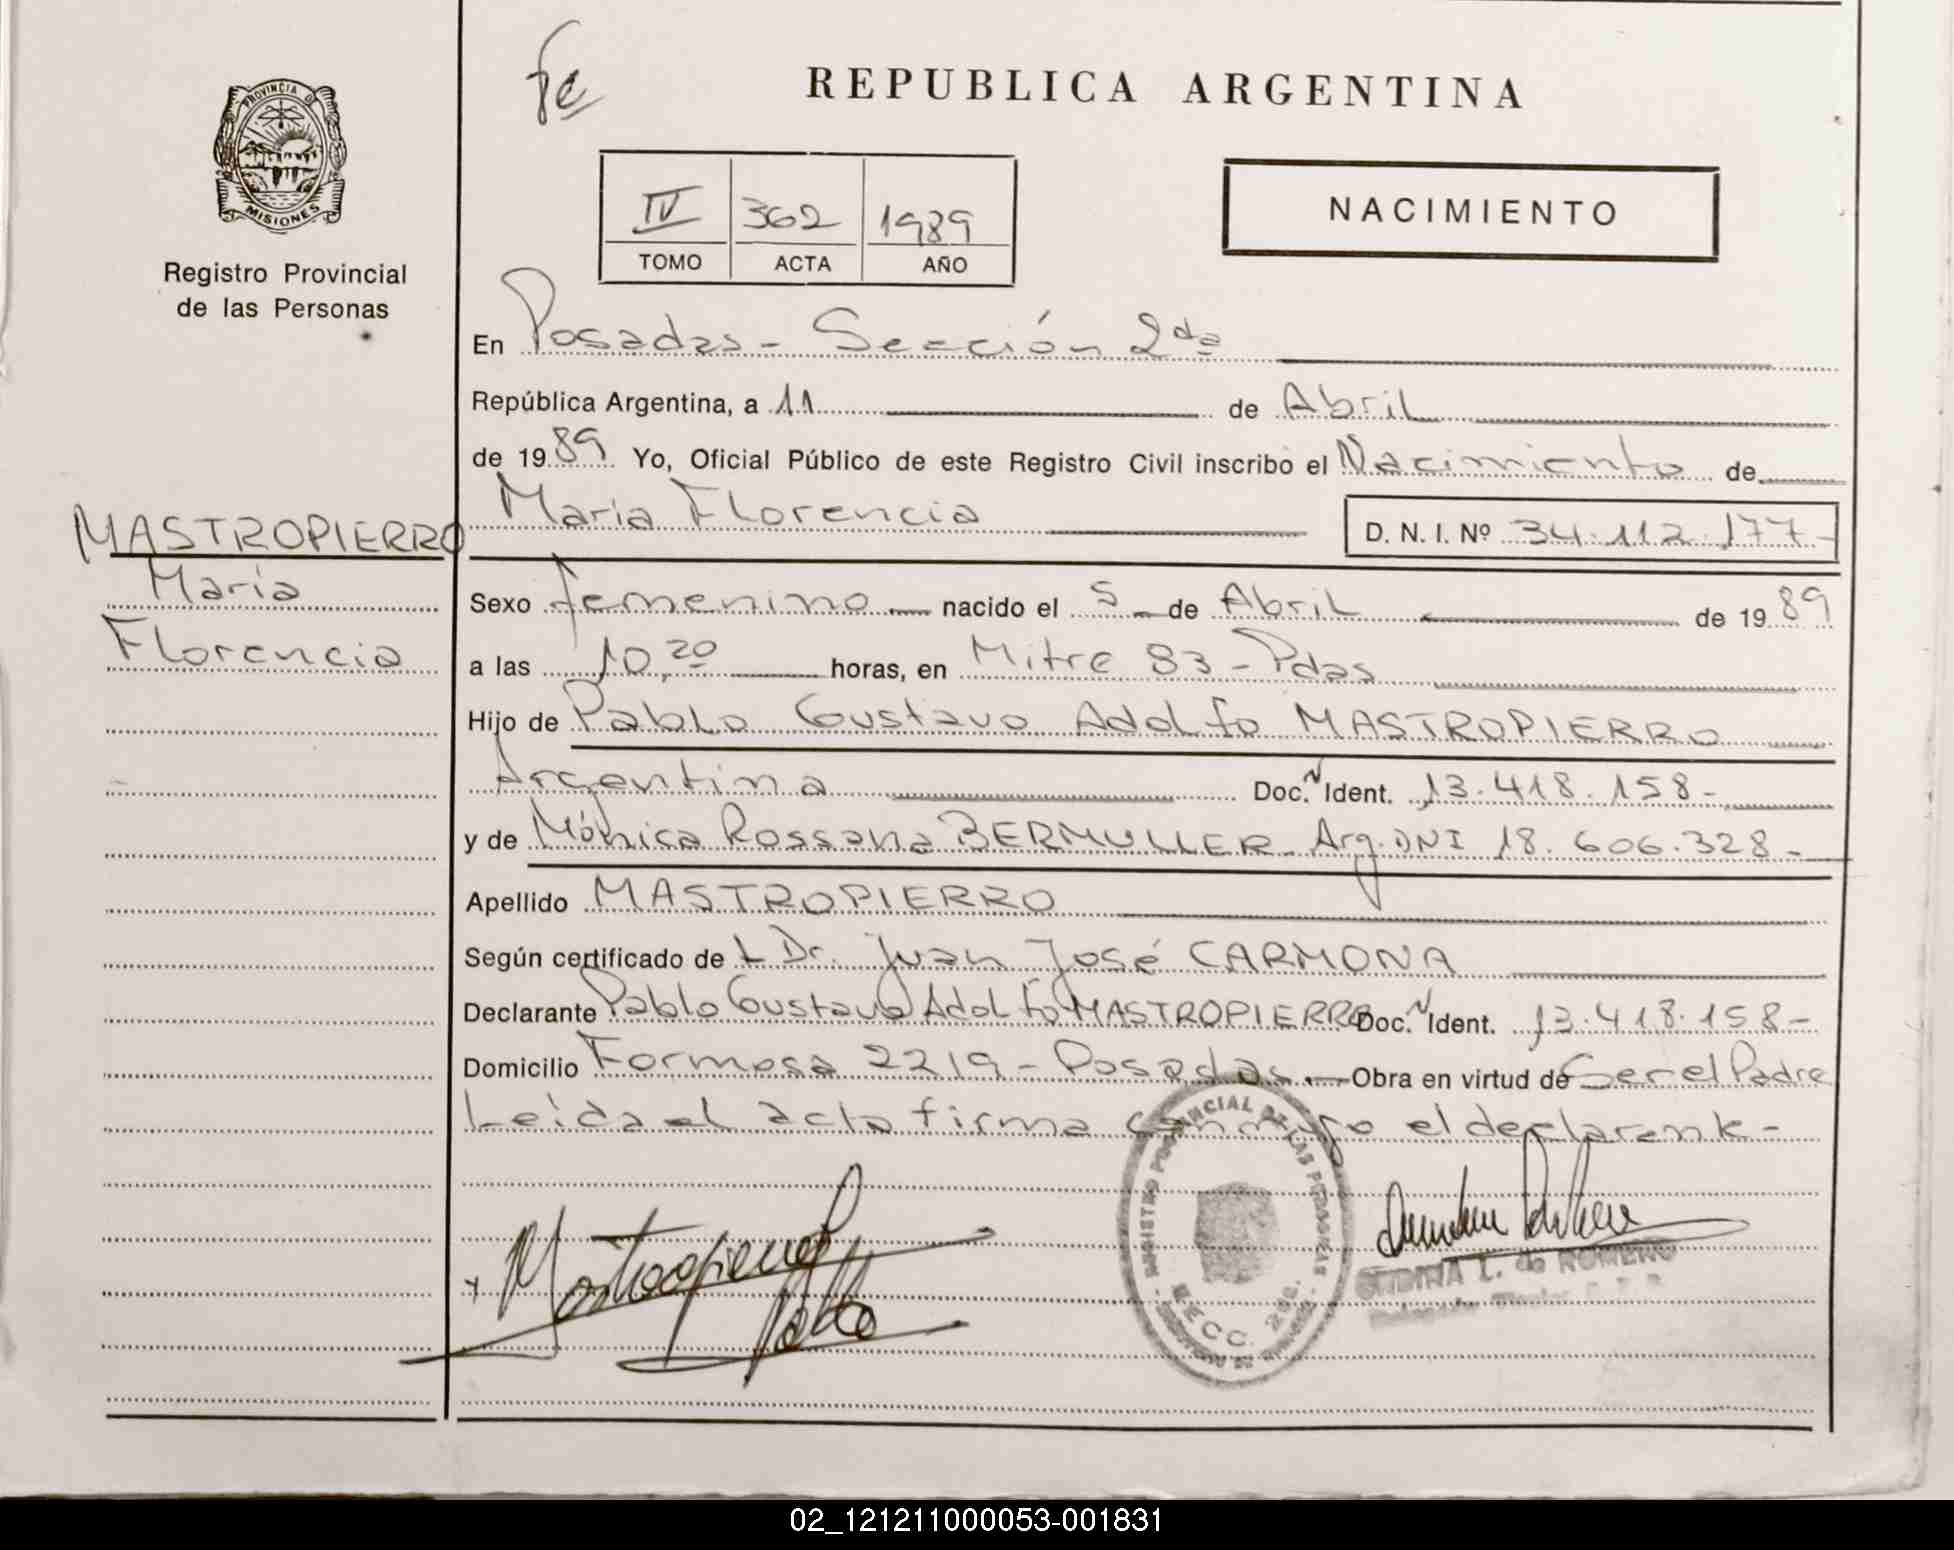 Fe
REPUBLICA ARGENTINA
PROVINCIA DE
MISIONES
Registro Provincial
de las Personas
IV 362 1989
TOMO ACTA AÑO
NACIMIENTO
En Posadas - Sección 2da
República Argentina, a 11 de Abril
de 1989 Yo, Oficial Público de este Registro Civil inscribo el Nacimiento de
María Florencia D. N. I. Nº 34.112.177-
MASTROPIERRO
María
Florencia
Sexo femenino nacido el 5 de Abril de 1989
a las 10,20 horas, en Mitre 83 - Pdas
Hijo de Pablo Gustavo Adolfo MASTROPIERRO
Argentina Doc. N Ident. 13.418.158-
y de Mónica Rossana BERMULLER Arg. DNI 18.606.328-
Apellido MASTROPIERRO
Según certificado de L Dr. Juan José CARMONA
Declarante Pablo Gustavo Adolfo MASTROPIERRO Doc. N Ident. 13.418.158-
Domicilio Formosa 2219 - Posadas Obra en virtud de Ser el Padre
Leída el acta firma conmigo el declarante -
Mastropierro
Pablo
L. de ROMERO
02_121211000053-001831